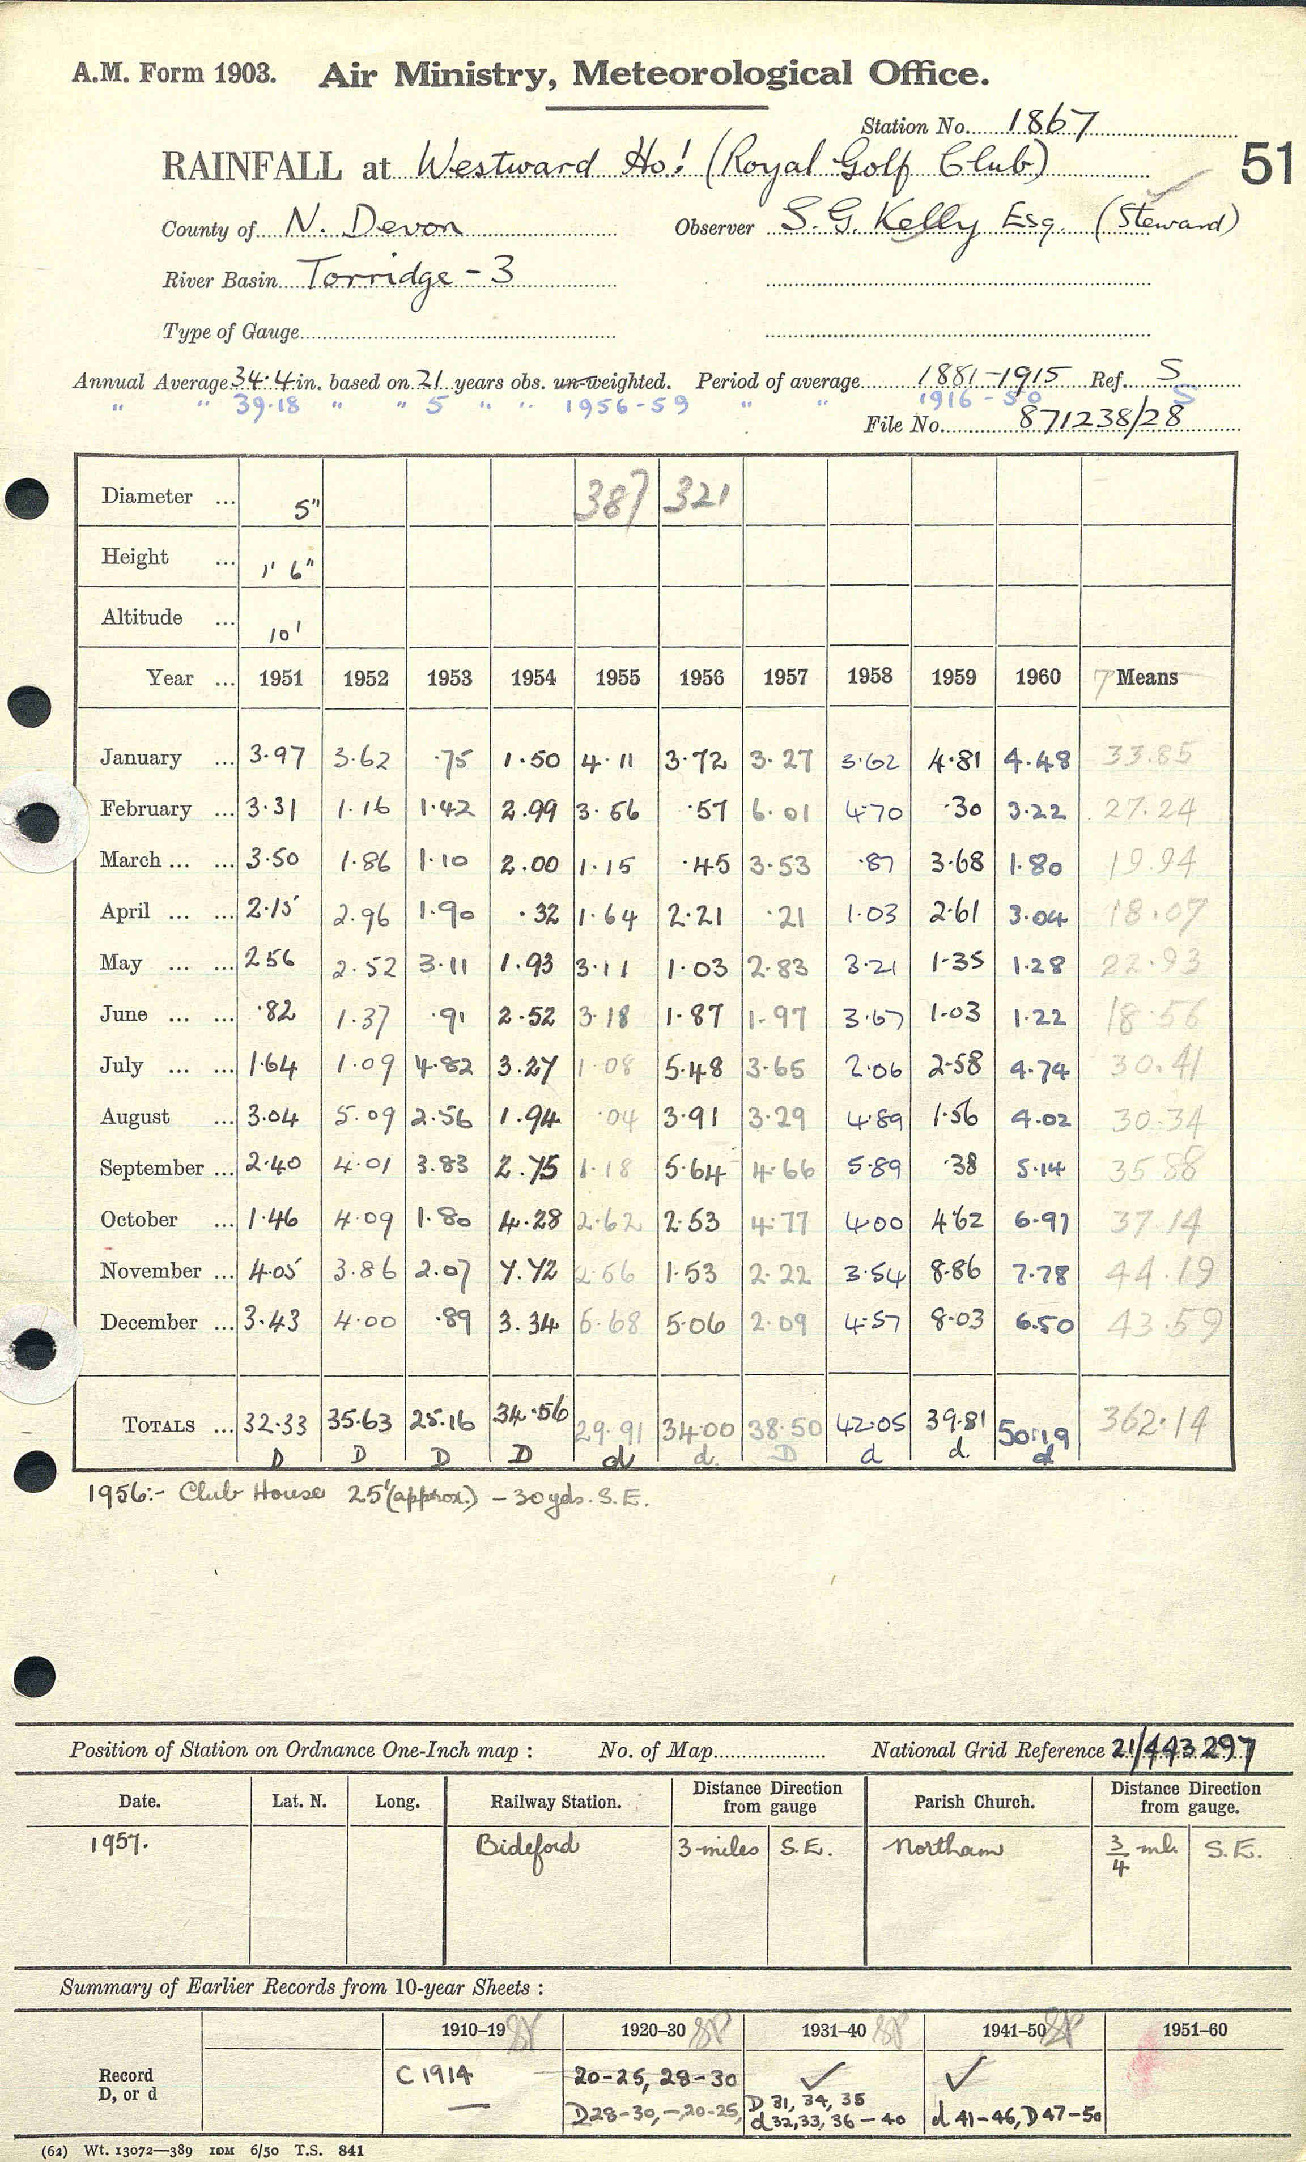 A.M. Form 1903. Air Ministry, Meteorological Office.
Station No. 1867
RAINFALL at Westward Ho! (Royal Golf Club) 51
County of N. Devon Observer S.G. Kelly Esq. (Steward)
River Basin Torridge - 3
Type of Gauge
Annual Average 34.4 in. based on 21 years obs. un-weighted. Period of average 1881-1915 Ref. S
" " 39.18 " " 5 " " 1956-59 " " 1916-50 S
File No. 871238/28
Diameter ... 5" 387 321
Height ... 1' 6"
Altitude ... 10'
Year ... 1951 1952 1953 1954 1955 1956 1957 1958 1959 1960 Means
January ... 3.97 3.62 .75 1.50 4.11 3.72 3.27 3.62 4.81 4.48 33.85
February ... 3.31 1.16 1.42 2.99 3.56 .57 6.01 4.70 .30 3.22 27.24
March ... ... 3.50 1.86 1.10 2.00 1.15 .45 3.53 .87 3.68 1.80 19.94
April ... ... 2.15 2.96 1.90 .32 1.64 2.21 .21 1.03 2.61 3.04 18.07
May ... ... 2.56 2.52 3.11 1.93 3.11 1.03 2.83 3.21 1.35 1.28 22.93
June ... ... .82 1.37 .91 2.52 3.18 1.87 1.97 3.67 1.03 1.22 18.56
July ... ... 1.64 1.09 4.82 3.27 1.08 5.48 3.65 2.06 2.58 4.74 30.41
August ... 3.04 5.09 2.56 1.94 .04 3.91 3.29 4.89 1.56 4.02 30.34
September ... 2.40 4.01 3.83 2.75 1.18 5.64 4.66 5.89 .38 5.14 35.88
October ... 1.46 4.09 1.80 4.28 2.62 2.53 4.77 4.00 4.62 6.97 37.14
November ... 4.05 3.86 2.07 7.72 2.56 1.53 2.22 3.54 8.86 7.78 44.19
December ... 3.43 4.00 .89 3.34 5.68 5.06 2.09 4.57 8.03 6.50 43.59
TOTALS ... 32.33 35.63 25.16 34.56 29.91 34.00 38.50 42.05 39.81 50.19 362.14
D D D D d d. D d d. d
1956:- Club House 25' (approx.) - 30 yds. S.E.
Position of Station on Ordnance One-Inch map : No. of Map National Grid Reference 21/443 297
Date. Lat. N. Long. Railway Station. Distance Direction from gauge Parish Church. Distance Direction from gauge.
1957. Bideford 3 miles S.E. Northam 3/4 ml. S.E.
Summary of Earlier Records from 10-year Sheets :
1910-19 1920-30 1931-40 1941-50 1951-60
Record D, or d C 1914 20-25, 28-30 ✓ ✓
— D 28-30, -, 20-25, D 31, 34, 35 d 32, 33, 36-40 d 41-46, D 47-50
(62) Wt. 13072—389 10M 6/50 T.S. 841